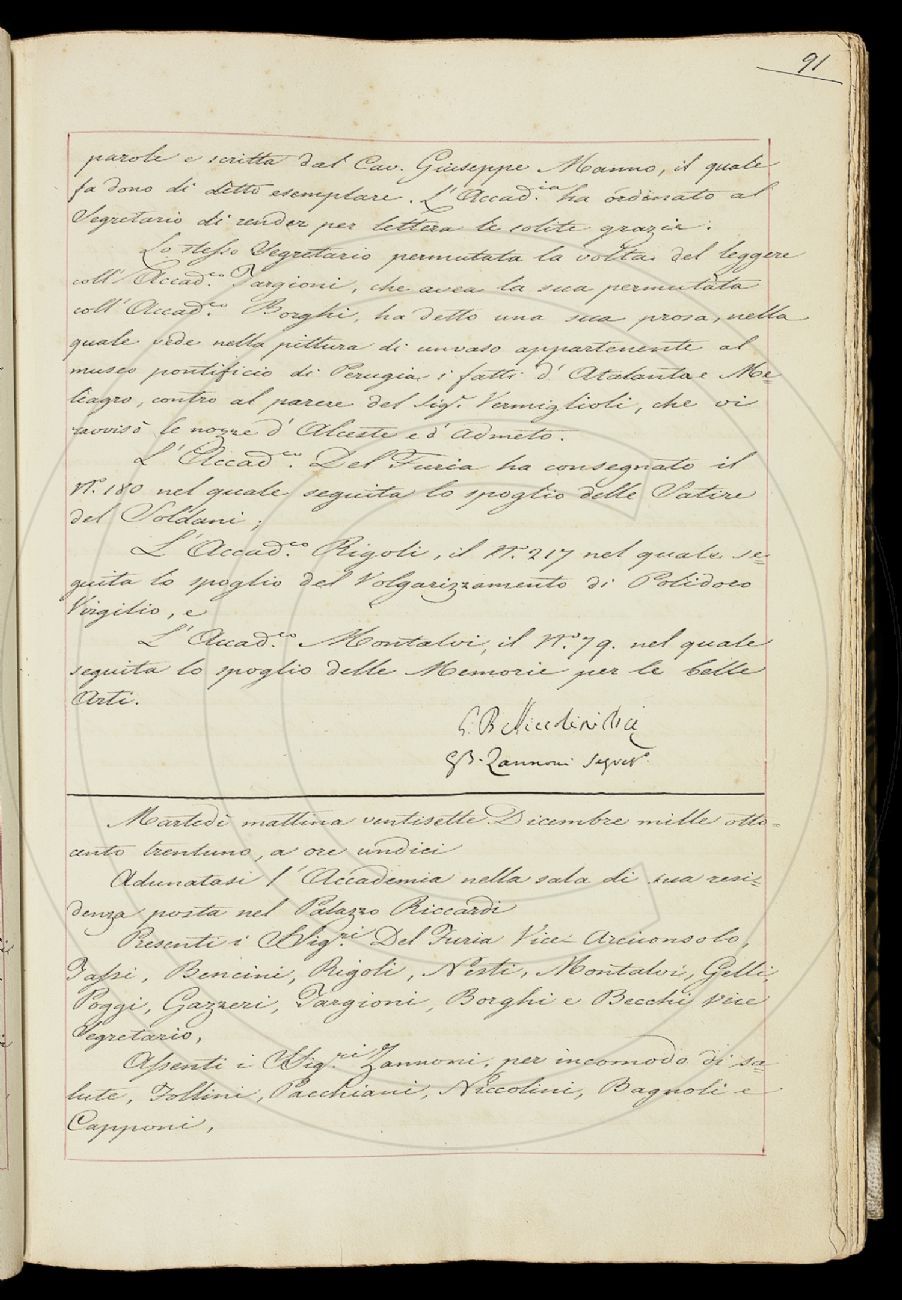 91
parole e scritta dal Cav. Giuseppe Manno, il quale
fa dono di detto esemplare. L'Accad.ia ha ordinato al
Segretario di render per lettera le solite grazie.
Lo stesso Segretario permutata la volta del leggere
coll'Accad.co Targioni, che avea la sua permutata
coll'Accad.co Borghi, ha detto una sua prosa, nella
quale vede nella pittura di un vaso appartenente al
museo pontificio di Perugia i fatti d'Atalanta e Me=
leagro, contro al parere del Sig.r Vermiglioli, che vi
ravvisò le nozze d'Alceste e d'Admeto.
L'Accad.co Del Furia ha consegnato il
N.o 180 nel quale seguita lo spoglio delle Satire
del Soldani;
L'Accad.co Rigoli, il N.o 217 nel quale se=
guita lo spoglio del Volgarizzamento di Polidoro
Virgilio, e
L'Accad.co Montalvi, il N.o 79. nel quale
seguita lo spoglio delle Memorie per le belle
Arti.
G. B. Niccolini
GB. Zannoni Segret.o
Martedì mattina ventisette Dicembre mille otto=
cento trentuno, a ore undici
Adunatasi l'Accademia nella sala di sua resi=
denza posta nel Palazzo Riccardi
Presenti i Sig.ri Del Furia Vice-Arciconsolo,
Tassi, Bencini, Rigoli, Nesti, Montalvi, Gelli,
Poggi, Gazzeri, Targioni, Borghi e Becchi Vice
Segretario,
Assenti i Sig.ri Zannoni, per incomodo di sa=
lute, Follini, Pacchiani, Niccolini, Bagnoli e
Capponi,